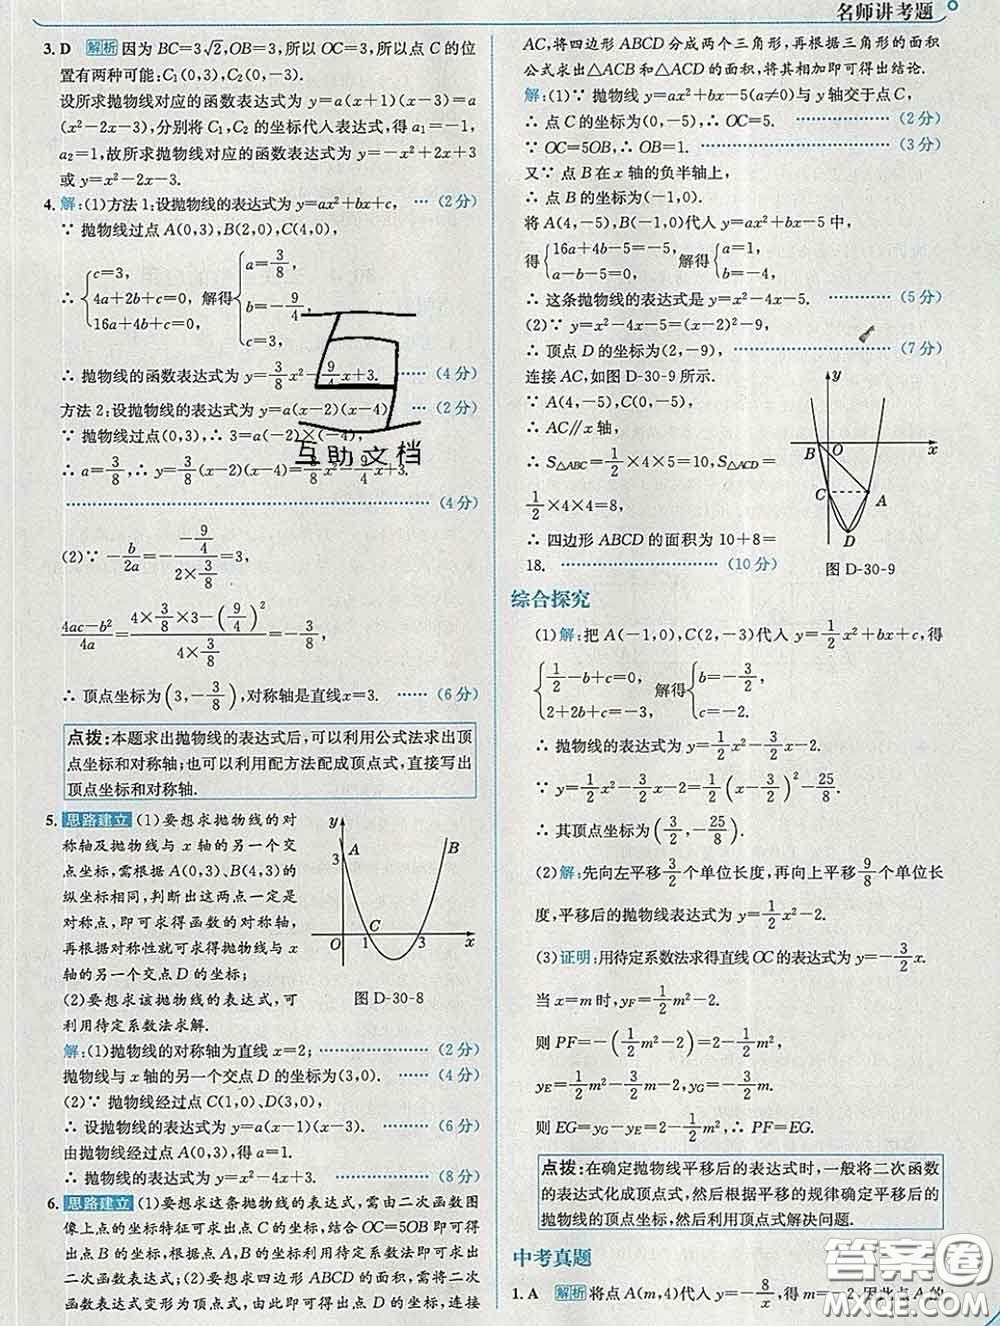 名师讲考题
3. D 解析 因为 BC=3√2,OB=3,所以 OC=3,所以点 C 的位
置有两种可能:C₁(0,3),C₂(0,-3).
设所求抛物线对应的函数表达式为 y=a(x+1)(x-3)=a
(x²-2x-3),分别将 C₁,C₂ 的坐标代入表达式,得 a₁=-1,
a₂=1,故所求抛物线对应的函数表达式为 y=-x²+2x+3
或 y=x²-2x-3.
4. 解:(1)方法 1:设抛物线的表达式为 y=ax²+bx+c, … (2分)
∵ 抛物线过点 A(0,3),B(2,0),C(4,0),
∴ {c=3, 4a+2b+c=0, 16a+4b+c=0, 解得 {a=3/8, b=-9/4, c=3.
∴ 抛物线的函数表达式为 y=3/8x²-9/4x+3. … (4分)
方法 2:设抛物线的表达式为 y=a(x-2)(x-4) … (2分)
∵ 抛物线过点(0,3),∴ 3=a(-2)×(-4),
∴ a=3/8,∴ y=3/8(x-2)(x-4)=3/8x²-9/4x+3.
…………………… (4分)
(2)∵ -b/2a=-(-9/4)/(2×3/8)=3,
(4ac-b²)/4a=(4×3/8×3-(9/4)²)/(4×3/8)=-3/8,
∴ 顶点坐标为(3,-3/8),对称轴是直线x=3. …… (6分)
点拨:本题求出抛物线的表达式后,可以利用公式法求出顶
点坐标和对称轴;也可以利用配方法配成顶点式,直接写出
顶点坐标和对称轴.
5. 思路建立 (1)要想求抛物线的对
称轴及抛物线与 x 轴的另一个交
点坐标,需根据 A(0,3)、B(4,3)的
纵坐标相同,判断出这两点一定是
对称点,即可求得函数的对称轴,
再根据对称性就可求得抛物线与 x
轴的另一个交点 D 的坐标;
(2)要想求该抛物线的表达式,可
利用待定系数法求解.
y
3
A
B
C
O
1
3
x
图 D-30-8
解:(1)抛物线的对称轴为直线 x=2; ………… (2分)
抛物线与 x 轴的另一个交点 D 的坐标为(3,0). …… (4分)
(2)∵ 抛物线经过点 C(1,0)、D(3,0),
∴ 设抛物线的表达式为 y=a(x-1)(x-3). …… (6分)
由抛物线经过点 A(0,3),得 a=1.
∴ 抛物线的表达式为 y=x²-4x+3. ………… (8分)
6. 思路建立 (1)要想求这条抛物线的表达式,需由二次函数图
像上点的坐标特征可求出点 C 的坐标,结合 OC=5OB 即可得
出点 B 的坐标,根据点 A、B 的坐标利用待定系数法即可求
出抛物线的表达式;(2)要想求四边形 ABCD 的面积,需将抛物线的
表达式变形为顶点式,由此即可得出点 D 的坐标,连接
AC,将四边形 ABCD 分成两个三角形,再根据三角形的面积
公式求出△ACB 和△ACD 的面积,将其相加即可得出结论.
解:(1)∵ 抛物线 y=ax²+bx-5(a≠0)与 y轴交于点 C,
∴ 点 C 的坐标为(0,-5),∴ OC=5. ………… (2分)
∵ OC=5OB,∴ OB=1. ………… (3分)
又∵ 点 B 在 x 轴的负半轴上,
∴ 点 B 的坐标为(-1,0).
将 A(4,-5),B(-1,0)代入 y=ax²+bx-5 中,
得 {16a+4b-5=-5, a-b-5=0; 解得 {a=1, b=-4.
∴ 这条抛物线的表达式是 y=x²-4x-5. …… (5分)
(2)∵ y=x²-4x-5=(x-2)²-9,
∴ 顶点 D 的坐标为(2,-9), ………… (7分)
连接 AC,如图 D-30-9 所示.
∵ A(4,-5),C(0,-5),
∴ AC∥x 轴,
∴ S△ABC=1/2×4×5=10,S△ACD=
1/2×4×4=8,
∴ 四边形 ABCD 的面积为 10+8=
18. ………… (10分)
y
B
O
x
C
A
D
图 D-30-9
综合探究
(1)解:把 A(-1,0),C(2,-3)代入 y=1/2x²+bx+c,得
{1/2-b+c=0, 2+2b+c=-3; 解得 {b=-3/2, c=-2.
∴ 抛物线的表达式为 y=1/2x²-3/2x-2.
∵ y=1/2x²-3/2x-2=1/2(x-3/2)²-25/8,
∴ 其顶点坐标为(3/2,-25/8).
(2)解:先向左平移3/2个单位长度,再向上平移9/8个单位长
度,平移后的抛物线表达式为 y=1/2x²-2.
(3)证明:用待定系数法求得直线 OC 的表达式为 y=-3/2x.
当 x=m 时,yF=1/2m²-2,
则 PF=-(1/2m²-2)=2-1/2m²,
yE=1/2m²-3/2m-2,yG=-3/2m,
则 EG=yG-yE=2-1/2m²,∴ PF=EG.
点拨:在确定抛物线平移后的表达式时,一般将二次函数
的表达式化成顶点式,然后根据平移的规律确定平移后的
抛物线的顶点坐标,然后利用顶点式解决问题.
中考真题
1. A 解析 将点 A(m,4)代入 y=-8/x,得 m=-2,因此点 A 的
互助文档
答案圈
MXQE.COM